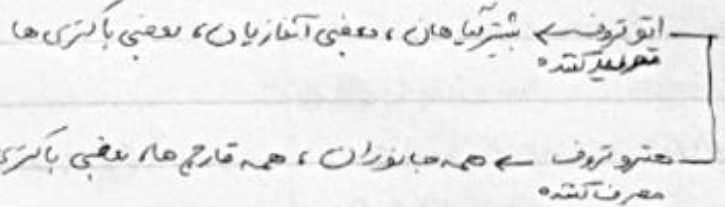 اتوتروف ← بیشتر گیاهان ، بعضی آغازیان ، بعضی باکتری ها
تولید کننده
هتروتروف ← همه جانوران ، همه قارچ ها، بعضی باکتری
مصرف کننده